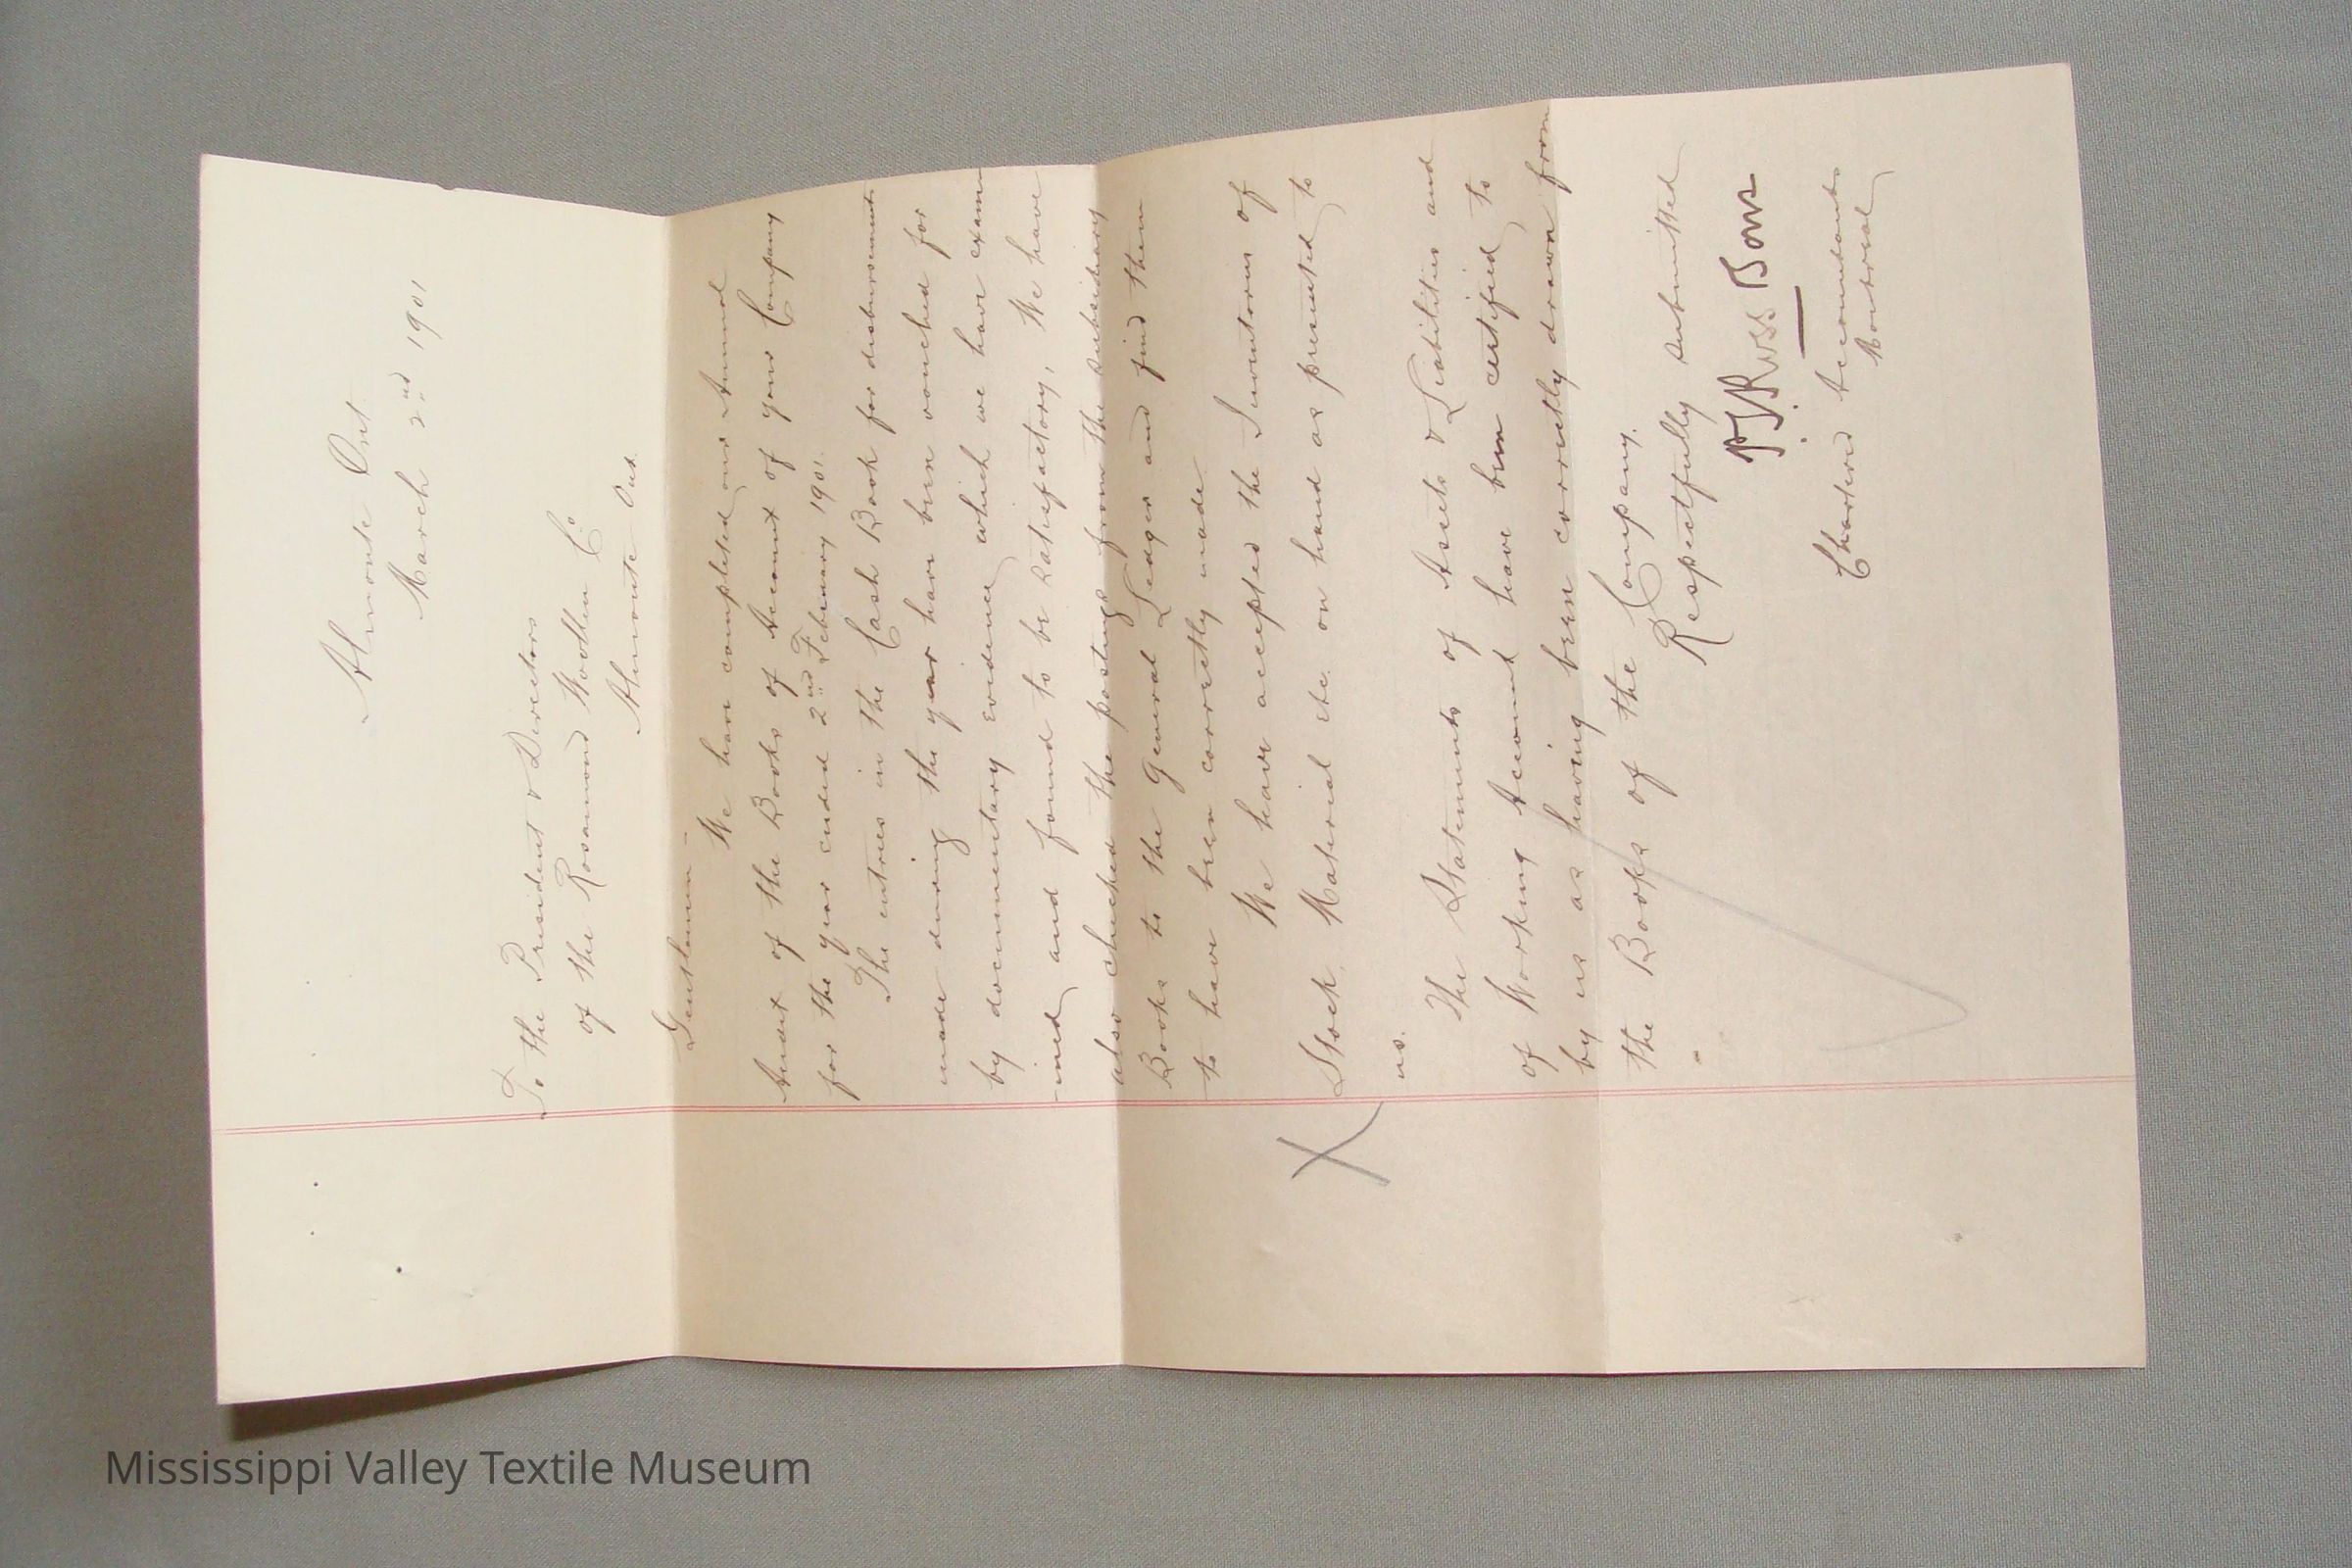 Almonte Ont.
March 2nd 1901
To the President & Directors
of the Rosamond Woollen Co
Almonte Ont.
Gentlemen -
We have completed our Annual
Audit of the Books of Account of your Company
for the year ended 2nd February 1901.
The entries in the Cash Book for disbursements
made during the year have been vouched for
by documentary evidence which we have exam
ined and found to be satisfactory, We have
also checked the postings from the subsidiary
Books to the General Ledger and find them
to have been correctly made.
We have accepted the Inventories of
Stock, Material etc. on hand as presented to
us.
The Statements of Assets & Liabilities and
of Working Account have been certified to
by us as having been correctly drawn from
the Books of the Company.
Respectfully submitted
P.S. Ross & Sons
Chartered Accountants
Montreal
X
Mississippi Valley Textile Museum